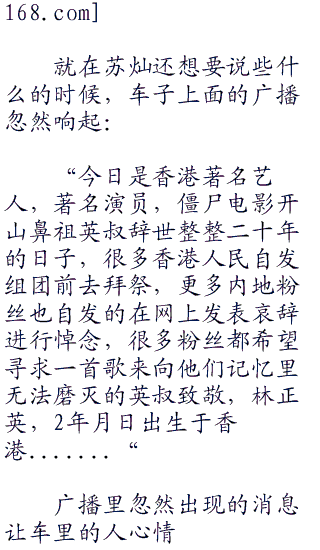 168.com]
就在苏灿还想要说些什
么的时候，车子上面的广播
忽然响起：
“今日是香港著名艺
人，著名演员，僵尸电影开
山鼻祖英叔辞世整整二十年
的日子，很多香港人民自发
组团前去拜祭，更多内地粉
丝也自发的在网上发表哀辞
进行悼念，很多粉丝都希望
寻求一首歌来向他们记忆里
无法磨灭的英叔致敬，林正
英，2年月日出生于香
港.......“
广播里忽然出现的消息
让车里的人心情